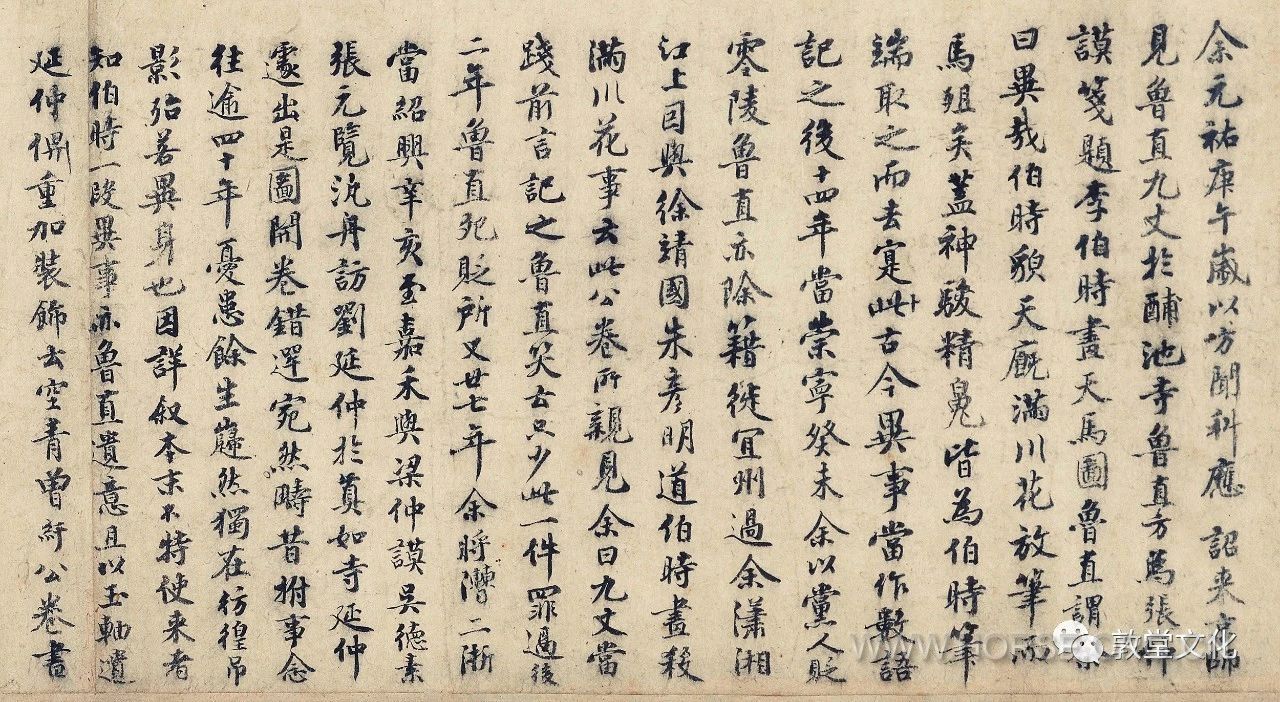 余元祐庚午歲以方聞科應詔来京師
見魯直九丈於酺池寺魯直方為張仲
謨箋題李伯時畫天馬圖魯直謂余
曰異哉伯時貌天廄滿川花放筆而
馬殂矣蓋神駿精魄皆為伯時筆
端取之而去寔此古今異事當作數語
記之後十四年當崇寧癸未余以黨人貶
零陵魯直亦除籍徙宜州過余瀟湘
江上因與徐靖國朱彦明道伯時畫殺
滿川花事云此公卷所親見余曰九丈當
踐前言記之魯直笑云只少此一件罪過後
二年魯直死貶所又廿七年余將漕二浙
當紹興辛亥至嘉禾與梁仲謨吳德素
張元覽汎舟訪劉延仲於真如寺延仲
遽出是圖開卷錯愕宛然疇昔拊事念
往逾四十年憂患餘生巋然獨在彷徨吊
影殆若異身也因詳叙本末不特使来者
知伯時一段異事亦魯直遺意且以玉軸遺
延仲俾重加裝飾云空青曾紆公卷書
敦堂文化